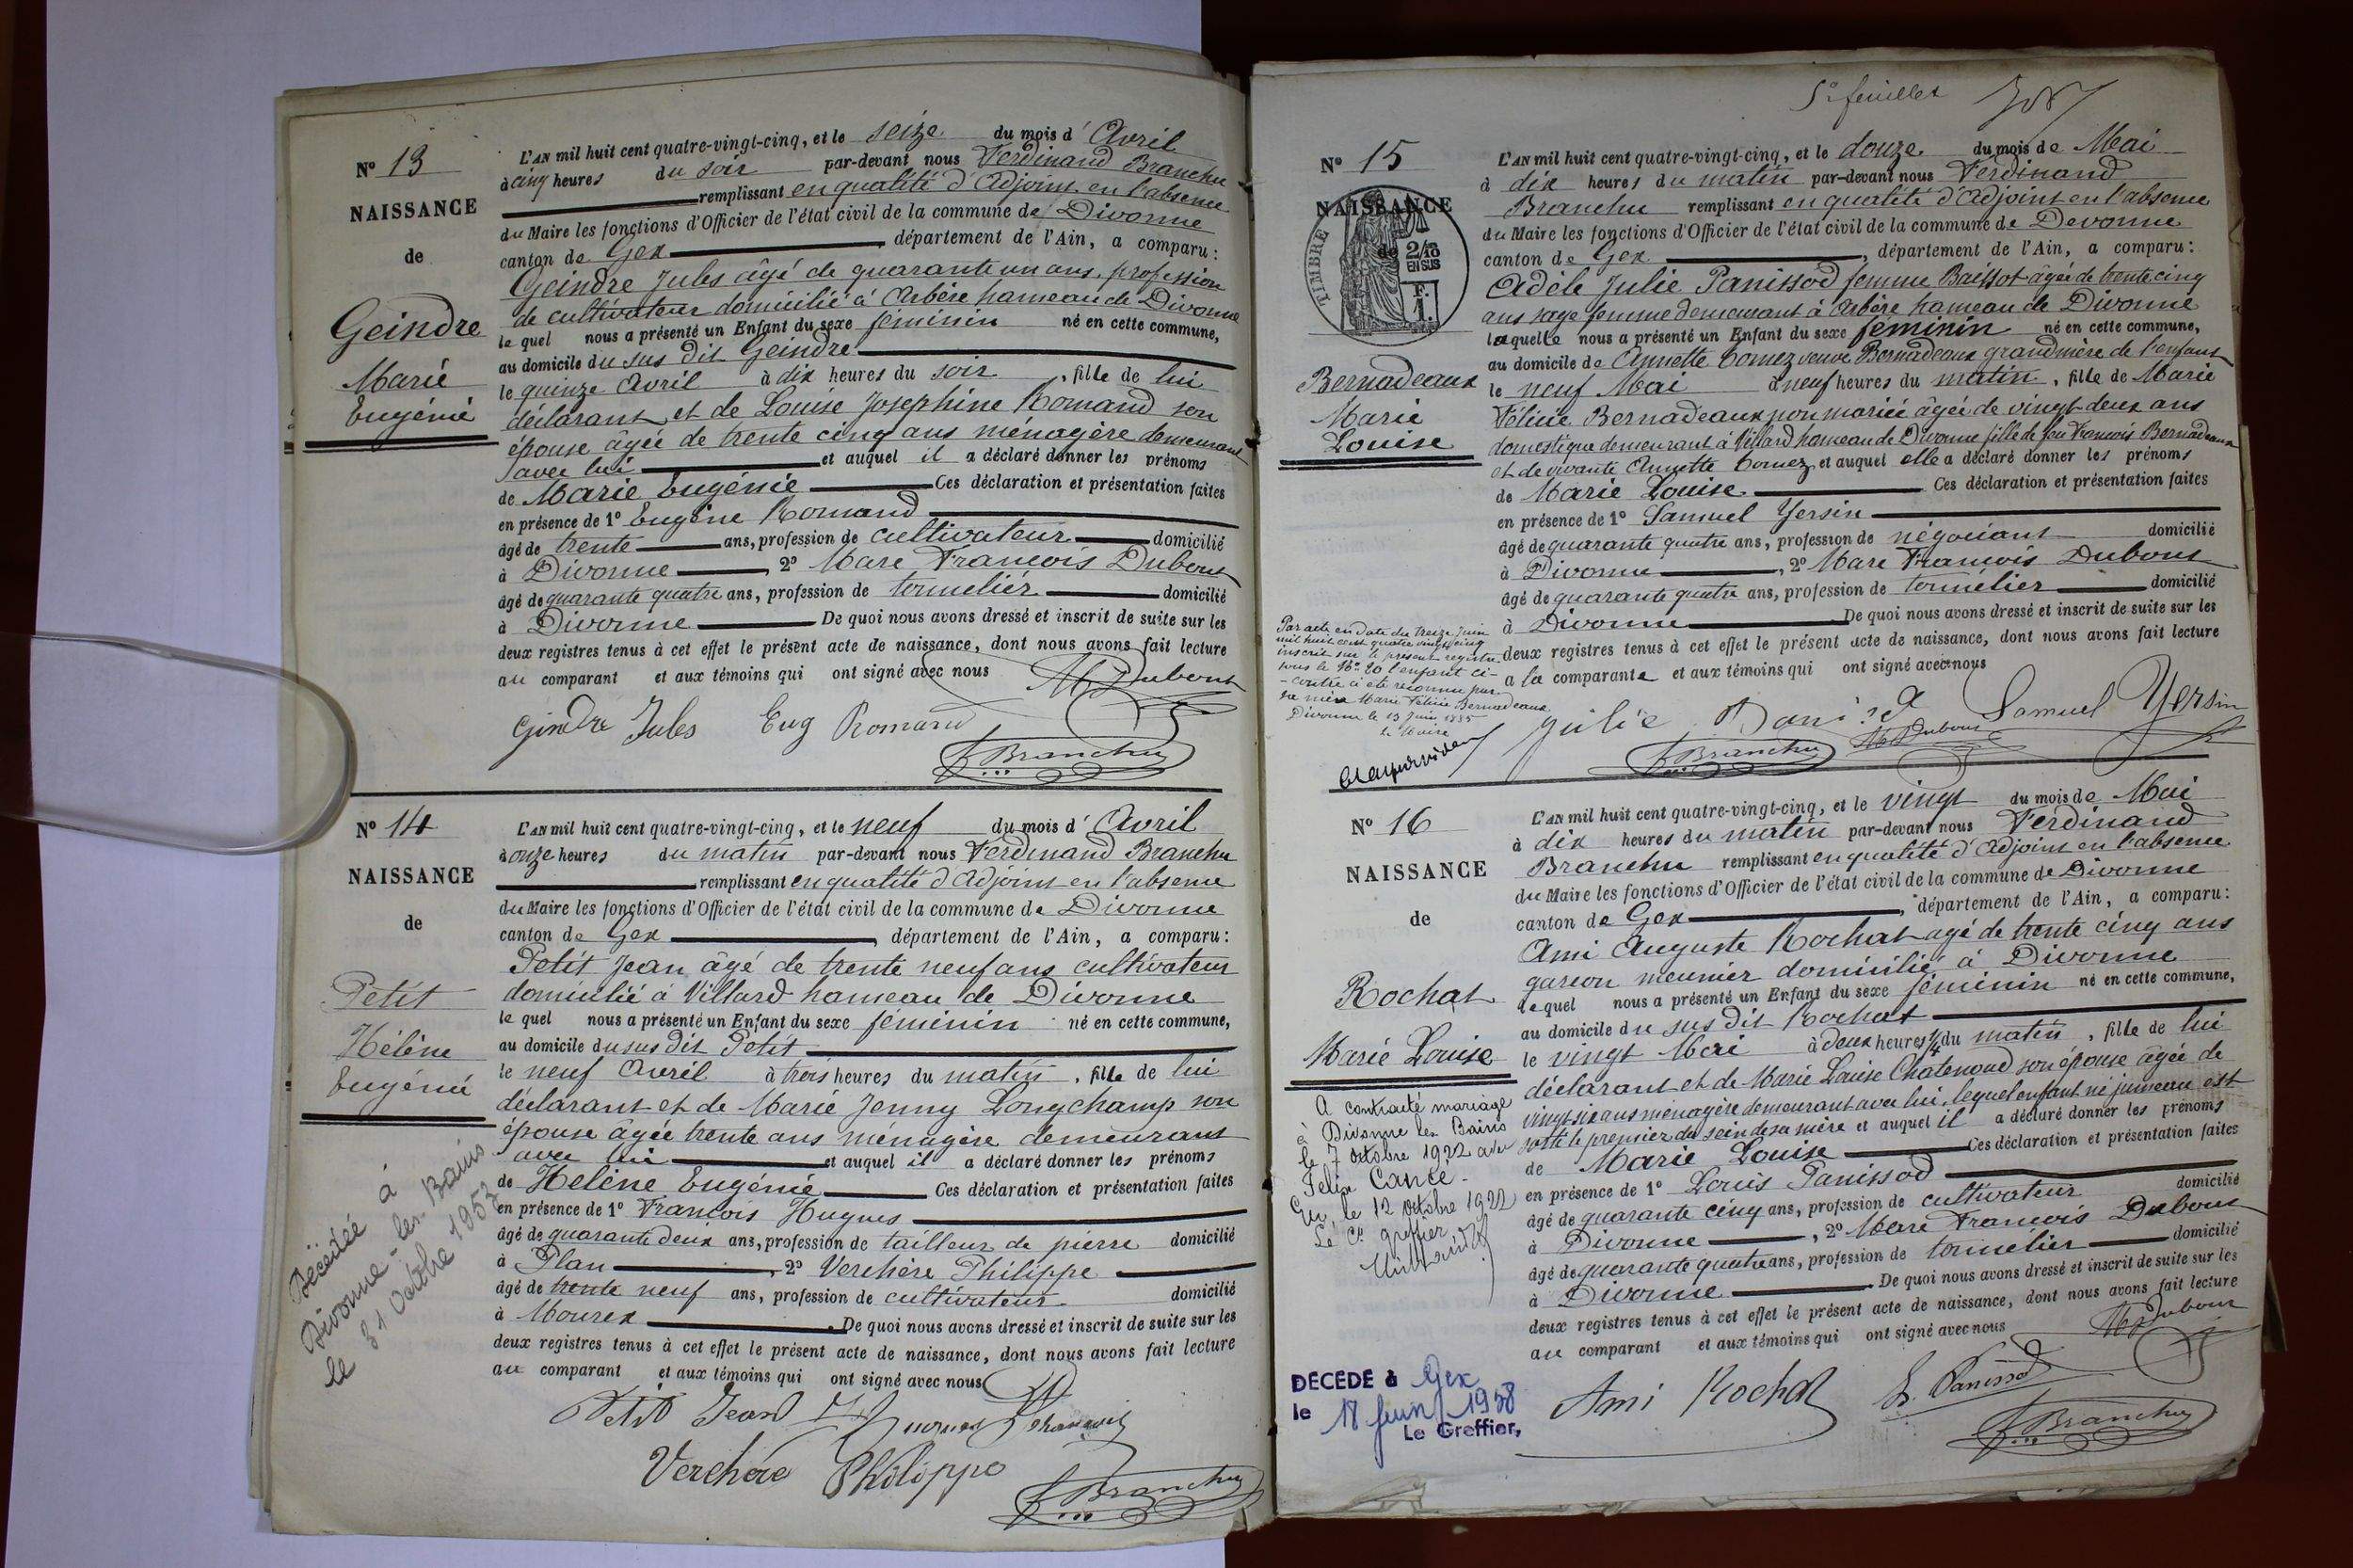 N° 13
NAISSANCE
de
Geindre
Marie
Eugénie
L'AN mil huit cent quatre-vingt-cinq, et le seize du mois d' Avril
à cinq heures du soir par-devant nous Ferdinand Branchu
remplissant en qualité d'Adjoint en l'absence
du Maire les fonctions d'Officier de l'état civil de la commune de Divonne
canton de Gex, département de l'Ain, a comparu :
Geindre Jules âgé de quarante un ans, profession
de cultivateur domicilié à Arbère hameau de Divonne
le quel nous a présenté un Enfant du sexe féminin né en cette commune,
au domicile du sus dit Geindre
le quinze Avril à dix heures du soir, fille de lui
déclarant et de Louise Josephine Romand son
épouse âgée de trente cinq ans ménagère demeurant
avec lui et auquel il a déclaré donner les prénoms
de Marie Eugénie Ces déclaration et présentation faites
en présence de 1° Eugène Romand
âgé de trente ans, profession de cultivateur domicilié
à Divonne, 2° Marc François Dubout
âgé de quarante quatre ans, profession de tonnelier domicilié
à Divonne De quoi nous avons dressé et inscrit de suite sur les
deux registres tenus à cet effet le présent acte de naissance, dont nous avons fait lecture
au comparant et aux témoins qui ont signé avec nous
M Dubout
Gindre Jules Eug Romand
F Branchu
N° 14
NAISSANCE
de
Petit
Hélène
Eugénie
Décédée à
Divonne-les-Bains
le 31 Octobre 195
L'AN mil huit cent quatre-vingt-cinq, et le neuf du mois d' Avril
à onze heures du matin par-devant nous Ferdinand Branchu
remplissant en qualité d'Adjoint en l'absence
du Maire les fonctions d'Officier de l'état civil de la commune de Divonne
canton de Gex, département de l'Ain, a comparu :
Petit Jean âgé de trente neuf ans cultivateur
domicilié à Villard hameau de Divonne
le quel nous a présenté un Enfant du sexe féminin né en cette commune,
au domicile du sus dit Petit
le neuf Avril à trois heures du matin, fille de lui
déclarant et de Marie Jenny Longchamp son
épouse âgée trente ans ménagère demeurant
avec lui et auquel il a déclaré donner les prénoms
de Helène Eugénie Ces déclaration et présentation faites
en présence de 1° François Hugues
âgé de quarante deux ans, profession de tailleur de pierre domicilié
à Plan, 2° Verchère Philippe
âgé de trente neuf ans, profession de cultivateur domicilié
à Mourex De quoi nous avons dressé et inscrit de suite sur les
deux registres tenus à cet effet le présent acte de naissance, dont nous avons fait lecture
au comparant et aux témoins qui ont signé avec nous
Petit Jean
Verchère Philippe
F Branchu
5e feuillet
N° 15
NAISSANCE
de
TIMBRE
2/10
EN SUS
F.
1.
Bernadeaux
Marie
Louise
L'AN mil huit cent quatre-vingt-cinq, et le douze du mois de Mai
à dix heures du matin par-devant nous Ferdinand
Branchu remplissant en qualité d'Adjoint en l'absence
du Maire les fonctions d'Officier de l'état civil de la commune de Devonne
canton de Gex, département de l'Ain, a comparu :
Adèle Julie Panissod femme Baissot âgée de trente cinq
ans sage femme demeurant à Arbère hameau de Divonne
laquelle nous a présenté un Enfant du sexe féminin né en cette commune,
au domicile de Annette Comez veuve Bernadeaux grandmère de l'enfant
le neuf Mai à neuf heures du matin, fille de Marie
Féline Bernadeaux non mariée âgée de vingt-deux ans
domestique demeurant à Villard hameau de Divonne fille de feu François Bernadeaux
et de vivante Annette Comez et auquel elle a déclaré donner les prénoms
de Marie Louise Ces déclaration et présentation faites
en présence de 1° Samuel Yersin
âgé de quarante quatre ans, profession de négociant domicilié
à Divonne, 2° Marc François Dubout
âgé de quarante quatre ans, profession de tonnelier domicilié
à Divonne De quoi nous avons dressé et inscrit de suite sur les
deux registres tenus à cet effet le présent acte de naissance, dont nous avons fait lecture
a la comparante et aux témoins qui ont signé avec nous
Par acte en date du treize Juin
mil huit cent quatre vingt cinq
inscrit sur le présent registre
sous le N° 20 l'enfant ci-
-contre a été reconnu par
sa mère Marie Féline Bernadeaux
Divonne le 13 Juin 1885
le Maire
Julie Samuel Yersin
F Branchu M Dubout
N° 16
NAISSANCE
de
Rochat
Marie Louise
A contracté mariage
à Divonne les Bains
le 7 octobre 1922 avec
Félix Cancé
Gex le 12 octobre 1922
Le Cis greffier
DECEDE à Gex
le 18 1958
Le Greffier,
L'AN mil huit cent quatre-vingt-cinq, et le vingt du mois de Mai
à dix heures du matin par-devant nous Ferdinand
Branchu remplissant en qualité d'Adjoint en l'absence
du Maire les fonctions d'Officier de l'état civil de la commune de Divonne
canton de Gex, département de l'Ain, a comparu :
Ami Auguste Rochat agé de trente cinq ans
garçon meunier domicilié à Divonne
le quel nous a présenté un Enfant du sexe féminin né en cette commune,
au domicile du sus dit Rochat
le vingt Mai à deux heures 1/4 du matin, fille de lui
déclarant et de Marie Louise Chatenoud son épouse âgée de
vingt-six ans ménagère demeurant avec lui, lequel enfant né jumeau est
sorti le premier du sein de sa mère et auquel il a déclaré donner les prénoms
de Marie Louise Ces déclaration et présentation faites
en présence de 1° Louis Panissod
âgé de quarante cinq ans, profession de cultivateur domicilié
à Divonne, 2° Marc François Dubout
âgé de quarante quatre ans, profession de tonnelier domicilié
à Divonne De quoi nous avons dressé et inscrit de suite sur les
deux registres tenus à cet effet le présent acte de naissance, dont nous avons fait lecture
au comparant et aux témoins qui ont signé avec nous
M Dubout
Ami Rochat L. Panissod
F Branchu